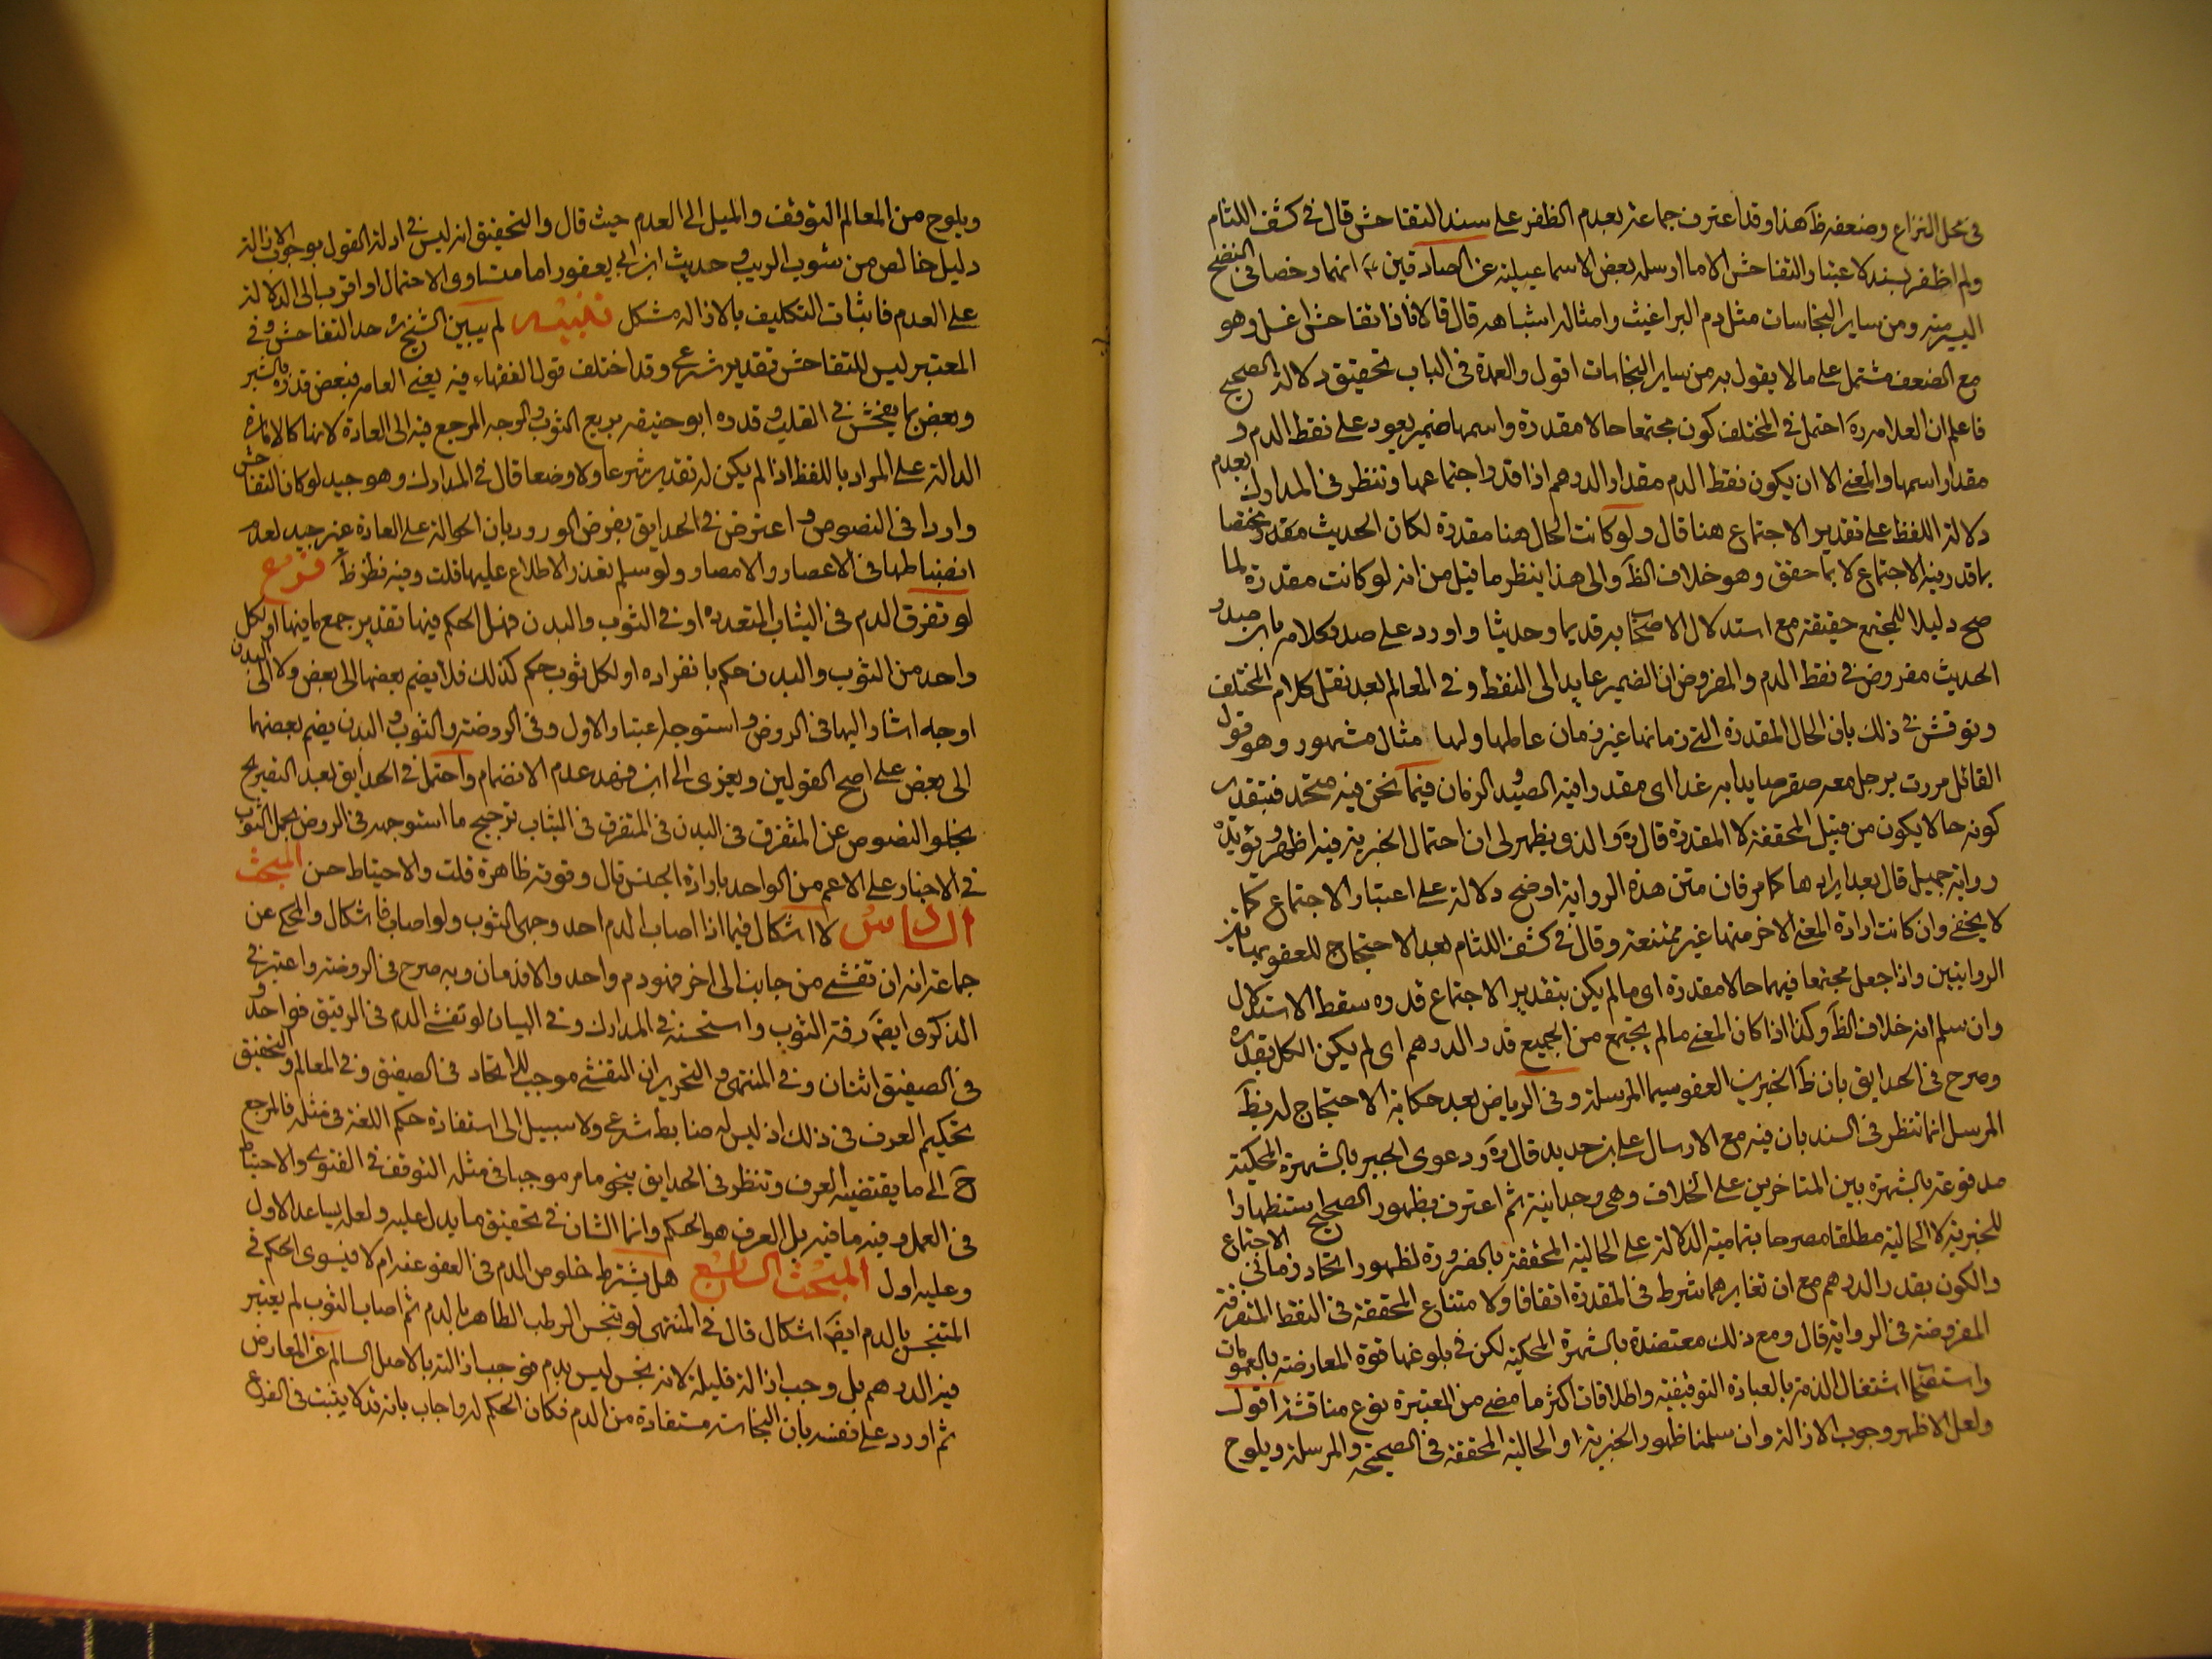 في محل النزاع وضعفه ظ هذا وقد اعترف جماعة بعدم الظفر على سند التفاحش قال في كشف اللثام
ولم اظفر بسند لاعتبار التفاحش الا ما ارسله بعض الاسماعيلية عن الصادقين انهما رخصا في النضح
اليسير منه ومن ساير النجاسات مثل دم البراغيث وامثاله واشباهه قال قالا فاذا تفاحش اغسل وهو
مع الضعف مشتمل على ما لا يقول به من ساير النجاسات اقول والعمدة في الباب تحقيق دلالة الصحيح
فاعلم ان العلامه ره احتمل في المختلف كون مجتمعا حالا مقدرة واسمها ضمير يعود على نقط الدم و
مقدار اسمها والمعنى الا ان يكون نقط الدم مقدار الدرهم اذا قدر اجتماعها وتنظر في المدارك بعدم
دلالة اللفظ على تقدير الاجتماع هنا قال ولو كانت الحال هنا مقدرة لكان الحديث مختصا
بما قدر فيه الاجتماع لا بما حقق وهو خلاف الظ والى هذا ينظر ما قيل من انه لو كانت مقدرة لما
صح دليلا للمجتمع حقيقة مع استدلال الاصحاب به قديما وحديثا واورد على صدر كلامه بان صدر
الحديث مفروض في نقط الدم والمفروض ان الضمير عايد الى النقط وفي المعالم بعد نقل كلام المختلف
ونوقش في ذلك بان الحال المقدرة التي زمانها غير زمان عاملها ولها مثال مشهور وهو قول
القائل مررت برجل معه صقر صايدا به غدا اي مقدرا فيه الصيد والزمان فيما نحن فيه متحد فبتقدير
كونه حالا يكون من قبيل المحققة لا المقدرة قال ره والذي يظهر لي ان احتمال الخبرية فيه اظهر ويؤيده
رواية جميل قال بعد ايرادها كما مر فان متن هذه الرواية اوضح دلالة على اعتبار الاجتماع كما
لا يخفى وان كانت ارادة المعنى الاخر منها غير ممتنعة وقال في كشف اللثام بعد الاحتجاج للعفو بهاتين
الروايتين واذا جعل مجتمعا فيهما حالا مقدرة اي ما لم يكن بتقدير الاجتماع قدره سقط الاستدلال
وان سلم انه خلاف الظ وكذا اذا كان المعنى ما لم يجتمع من الجميع قدر الدرهم اي لم يكن الكل بقدره
وصرح في الحدايق بان ظ الخبرين العفو سيما المرسلة وفي الرياض بعد حكاية الاحتجاج له بظ
المرسل انما تنظر في السند بان فيه مع الارسال علي بن حديد قال ره ودعوى الجبر بالشهرة المحكية
مدفوعة بالشهرة بين المتاخرين على الخلاف وهي وجدانية ثم اعترف بظهور الصحيح استنظهارا
للخبرية لا الحالية مطلقا مصرحا بتمامية الدلالة على الحالية المحققة بالضرورة لظهور اتحاد زماني الاجتماع
والكون بقدر الدرهم مع ان تغايرهما شرط في المقدرة اتفاقا ولا متناع المحققة في النقط المتفرقة
المفروضة في الرواية قال ومع ذلك معتضدة بالشهرة المحكية لكن في بلوغها قوة المعارضة بالعمومات
واستصحاب اشتغال الذمة بالعبادة التوقيفية واطلاقات اكثر ما مضى من المعتبرة نوع مناقشة اقول
ولعل الاظهر وجوب الازالة وان سلمنا ظهور الخبرية او الحالية المحققة في الصحيحة والمرسلة ويلوح
ويلوح من المعالم التوقف والميل الى العدم حيث قال والتحقيق انه ليس في ادلة القول بوجوب الازالة
دليل خالص من شوب الريب وحديث ابن ابي يعفور اما متساوى الاحتمال او اقرب الى الدلالة
على العدم فاثبات التكليف بالازالة مشكل تنبيه لم يبين الشيخ ره حد التفاحش وفي
المعتبر ليس للتفاحش تقدير شرعي وقد اختلف قول الفقهاء فيه يعني العامه فبعض قدره بالشبر
وبعض بما يفحش في القلب وقدره ابو حنيفة بربع الثوب والوجه المرجع فيه الى العادة لانها كالامارة
الدالة على المراد باللفظ اذا لم يكن له تقدير شرعا ولا وضعا قال في المدارك وهو جيد لو كان التفاحش
واردا في النصوص واعترض في الحدايق بفرض الورود بان الحوالة على العادة غير جيد لعدم
انضباطها في الاعصار والامصار ولو سلم تعذر الاطلاع عليها قلت وفيه نظر ظ فرع
لو تفرق الدم في الثياب المتعدده او في الثوب والبدن فهل الحكم فيها تقدير جمع ما فيها او لكل
واحد من الثوب والبدن حكم بانفراده او لكل ثوب حكم كذلك فلا يضم بعضها الى بعض ولا الى البدن
اوجه اشار اليها في الروض واستوجه اعتبار الاول وفي الروضة والثوب والبدن يضم بعضها
الى بعض على اصح القولين ويعزى الى ابن فهد عدم الانضمام واحتمل في الحدايق بعد التصريح
بخلو النصوص عن المتفرق في البدن في المتفرق في الثياب ترجيح ما استوجهه في الروض بحمل الثوب
في الاخبار على الاعم من الواحد بارادة الجنس قال وقوته ظاهرة قلت والاحتياط حسن المبحث
السادس لا اشكال فيما اذا اصاب الدم احد وجهي الثوب ولو اصاب فاشكال والمحكى عن
جماعة انه ان تفشى من جانب الى اخر فهو دم واحد والا فدمان وبه صرح في الروضة واعتبر في
الذكرى ايض رقة الثوب واستحسنه في المدارك وفي البيان لو تفشى الدم في الرقيق فواحد و
في الصفيق اثنان وفي المنتهى والتحرير ان التفشى موجب للاتحاد في الصفيق وفي المعالم والتحقيق
تحكيم العرف في ذلك اذ ليس له ضابط شرعي ولا سبيل الى استفادة حكم اللغة في مثله فالمرجع
ح الى ما يقتضيه العرف وتنظر في الحدايق بنحو ما مر موجبا في مثله التوقف في الفتوى والاحتياط
في العمل وفيه ما فيه بل العرف هو الحكم وانما الشان في تحقيق ما يدل عليه ولعله يساعد الاول
وعليه اول المبحث السابع هل يشترط خلوص الدم في العفو عنه ام لا فيسوى الحكم في
المتنجس بالدم ايض اشكال قال في المنتهى لو تنجس الرطب الطاهر بالدم ثم اصاب الثوب لم يعتبر
فيه الدرهم بل وجب ازالة قليله لانه نجس ليس بدم فوجب ازالته بالاصل السالم عن المعارض
ثم اورد على نفسه بان النجاسة مستفادة من الدم فكان الحكم له واجاب بانه قد لا يثبت في الفرع